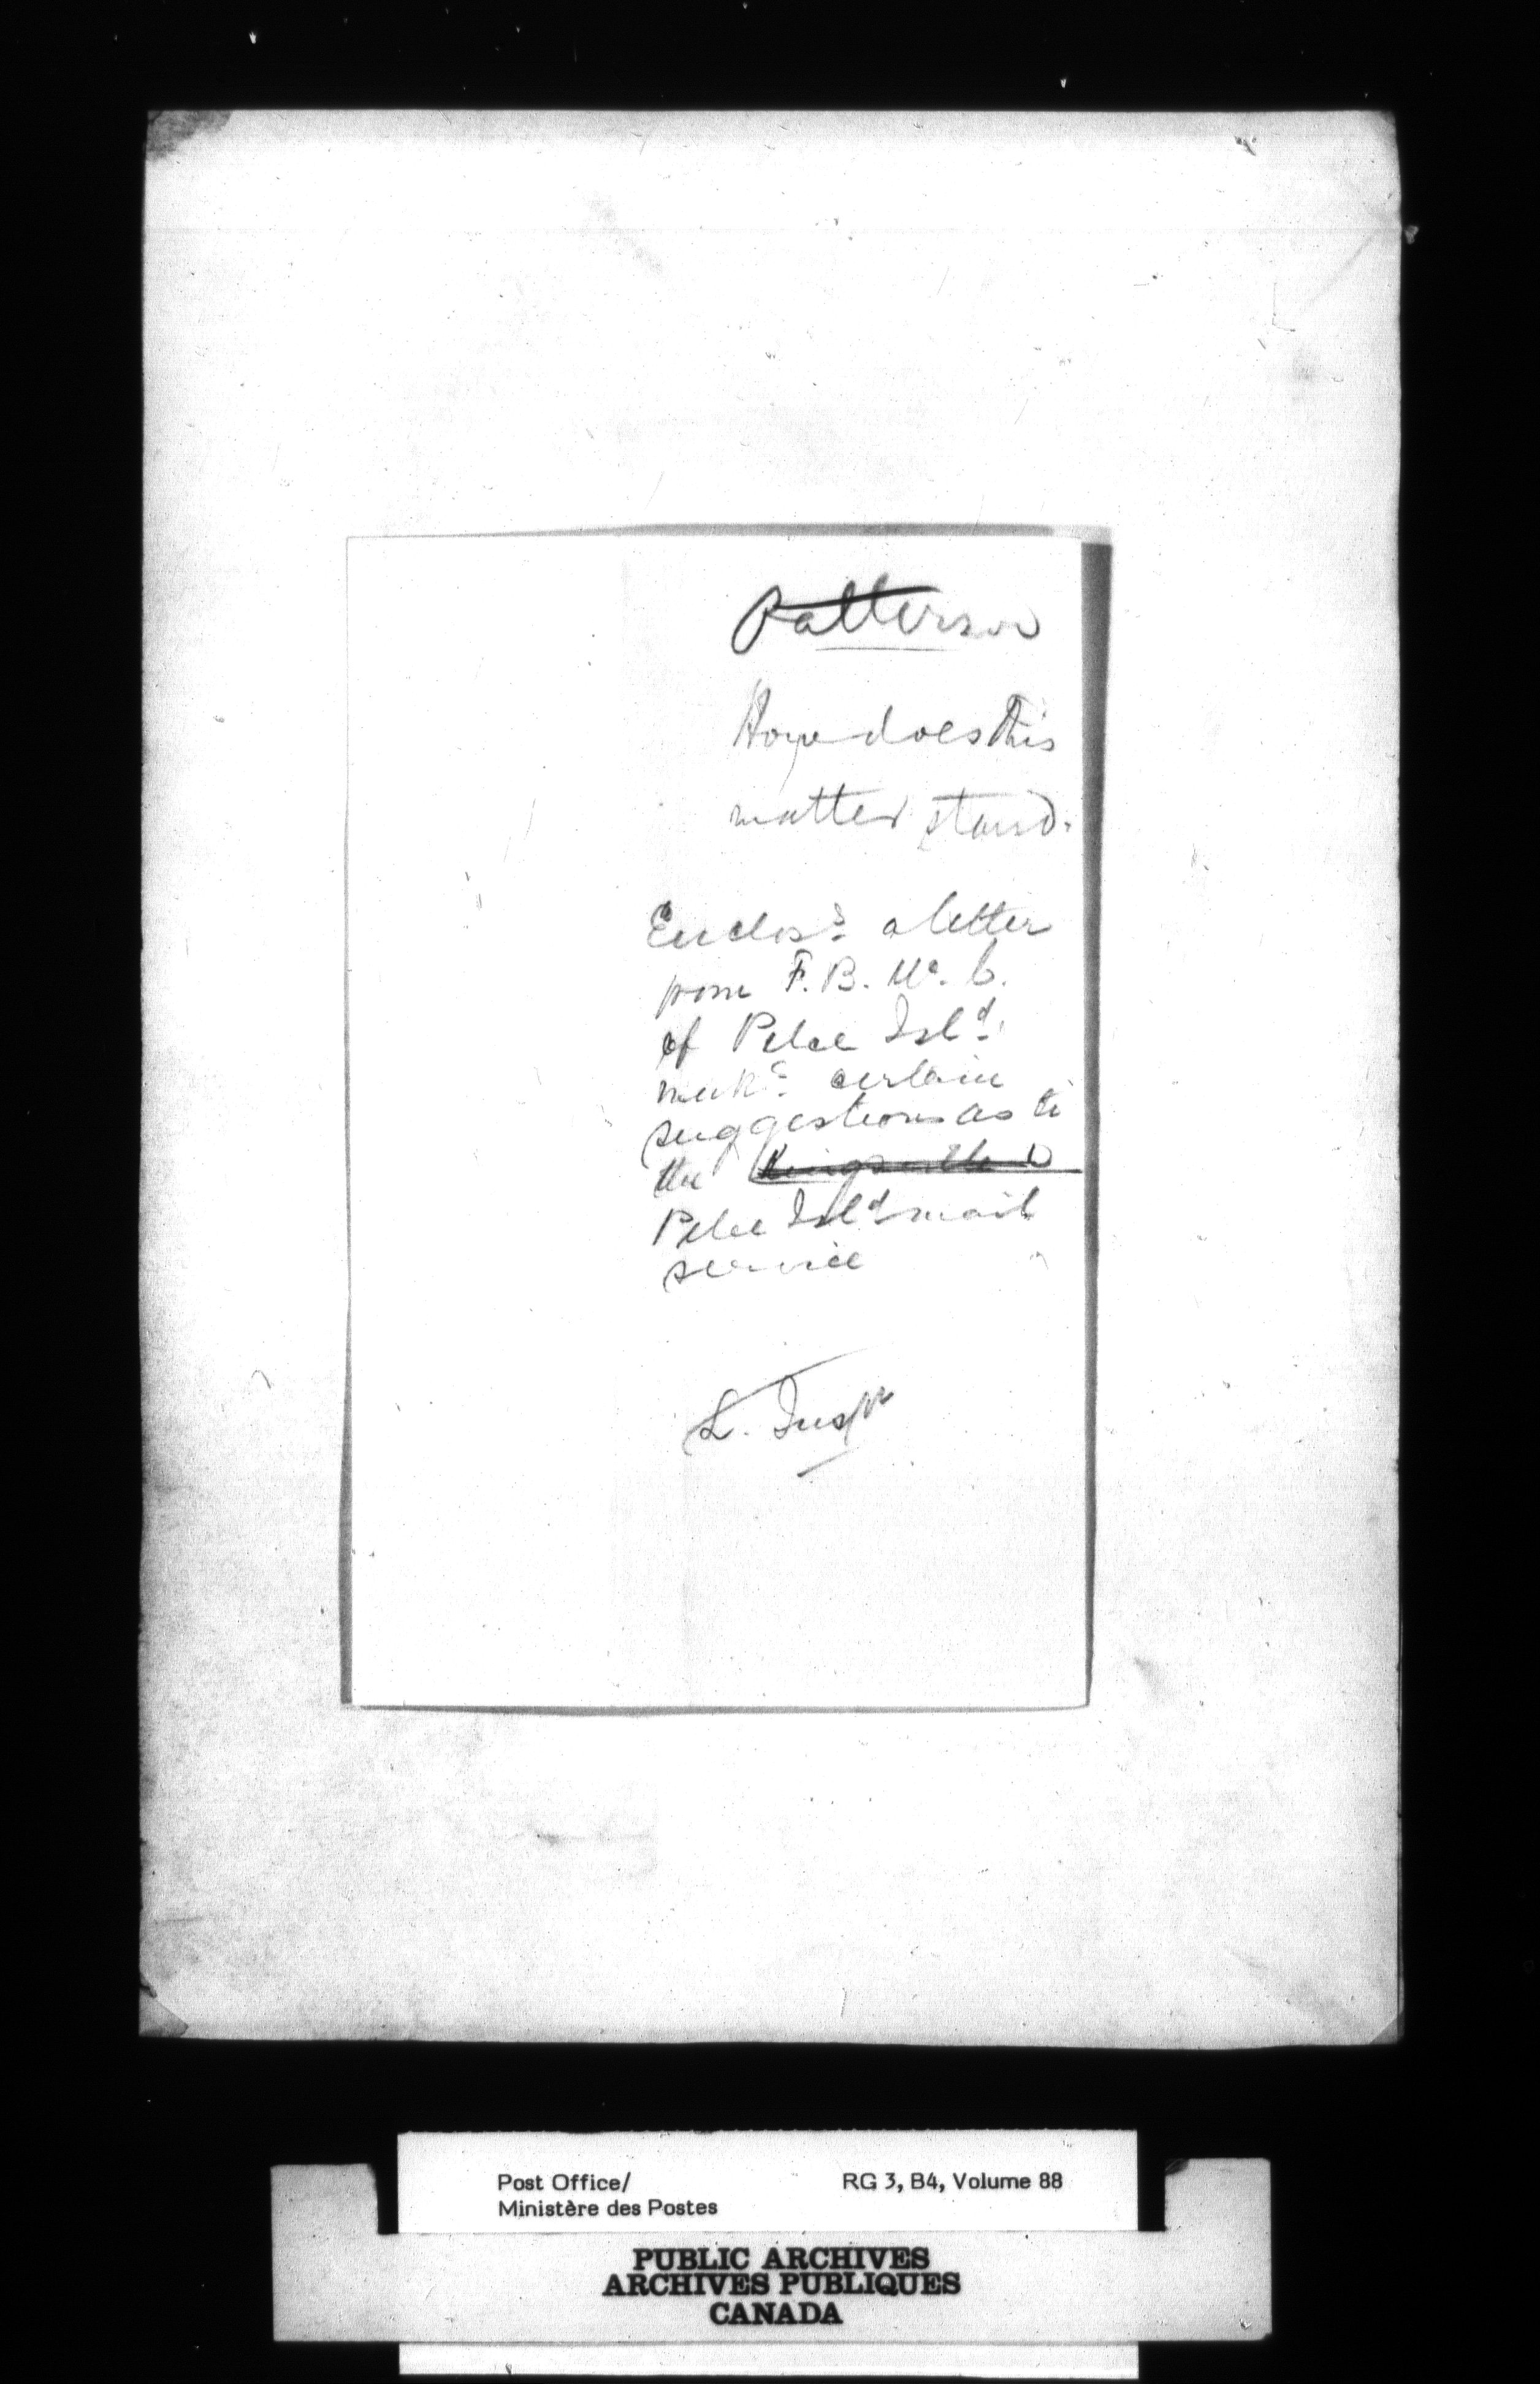 Patterson
How does this
matter stand.
Enclosᵍ a letter
from F. B. Mc. C.
of Pelee Islᵈ.
makᵍ certain
suggestions as to
the Kingsville &
Pelee Islᵈ mail
service
L. Inspr
Post Office/
Ministère des Postes
RG 3, B4, Volume 88
PUBLIC ARCHIVES
ARCHIVES PUBLIQUES
CANADA